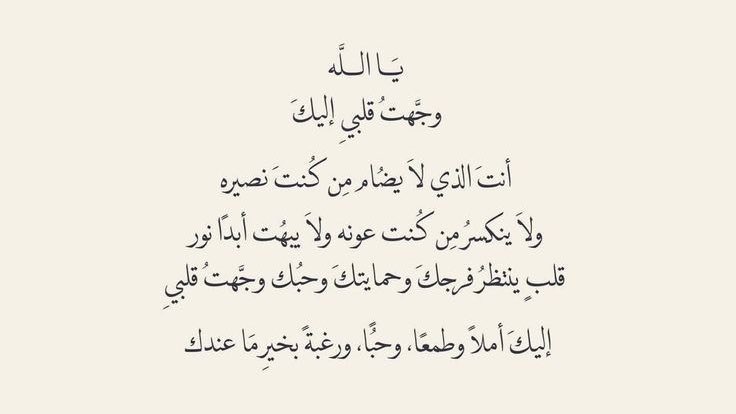 يَــا الـلَّه
وجَّهتُ قلبيِ إليكَ
أنتَ الذي لاَ يضُام مِن كُنتَ نصيره
ولاَ ينكسرُ مِن كُنت عونه ولاَ يبهُت أبدًا نور
قلبٍ ينتظرُ فرجكَ وحمايتكَ وحبُك وجَّهتُ قلبيِ
إليكَ أملاً وطمعًا، وحبًُا، ورغبةً بخيرِ مَا عندك